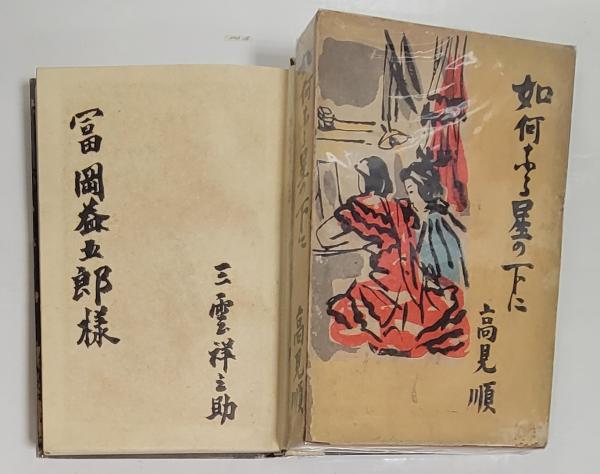 冨岡益五郎様
三雲祥之助
如何なる星の下に
高見順
如何なる星の下に
高見順